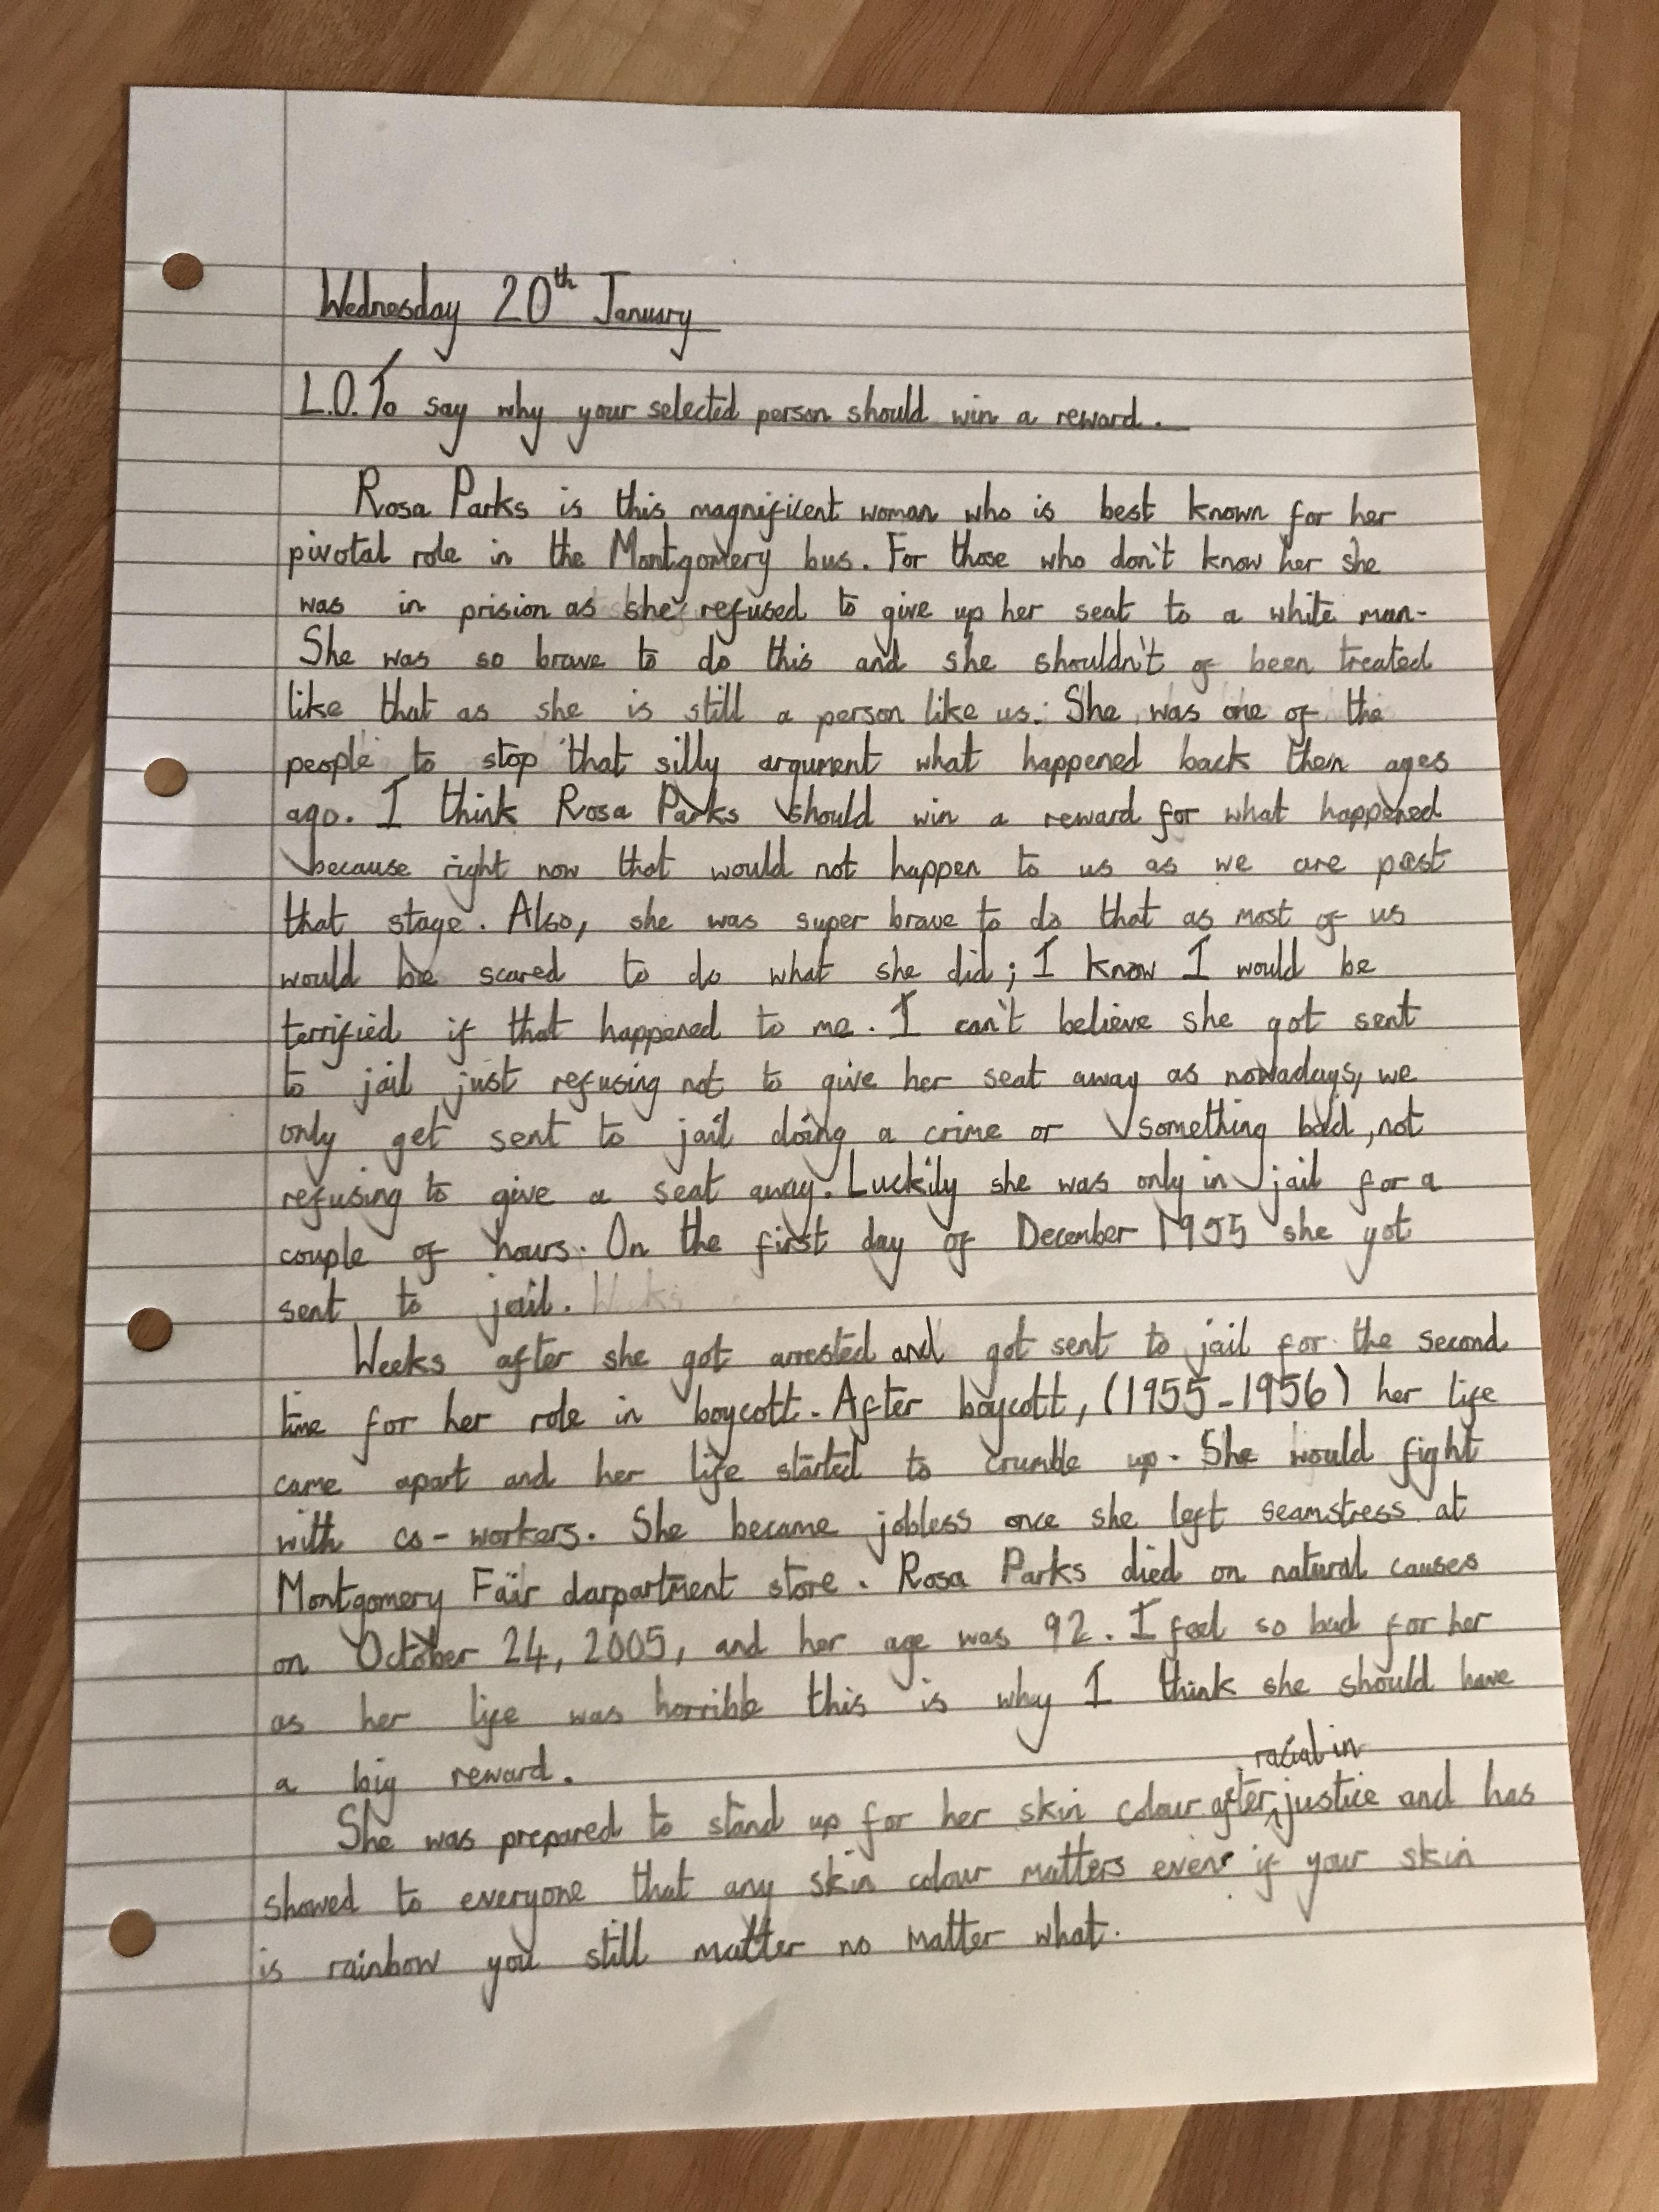 Wednesday 20th January
L.O. To say why your selected person should win a reward.
Rosa Parks is this magnificent woman who is best known for her
pivotal role in the Montgomery bus. For those who don't know her she
was in prision as she refused to give up her seat to a white man.
She was so brave to do this and she shouldn't of been treated
like that as she is still a person like us. She was one of the
people to stop that silly argument what happened back then ages
ago. I think Rosa Parks should win a reward for what happened
because right now that would not happen to us as we are past
that stage. Also, she was super brave to do that as most of us
would be scared to do what she did; I know I would be
terrified if that happened to me. I can't believe she got sent
to jail just refusing not to give her seat away as nowadays, we
only get sent to jail doing a crime or something bad, not
refusing to give a seat away. Luckily she was only in jail for a
couple of hours. On the first day of December 1955 she got
sent to jail.
Weeks after she got arrested and got sent to jail for the second
time for her role in boycott. After boycott, (1955-1956) her life
came apart and her life started to crumble up. She would fight
with co-workers. She became jobless once she left seamstress at
Montgomery Fair darpartment store. Rosa Parks died on natural causes
on October 24, 2005, and her age was 92. I feel so bad for her
as her life was horrible this is why I think she should have
a big reward.
racial in
She was prepared to stand up for her skin colour after justice and has
showed to everyone that any skin colour matters even if your skin
is rainbow you still matter no matter what.